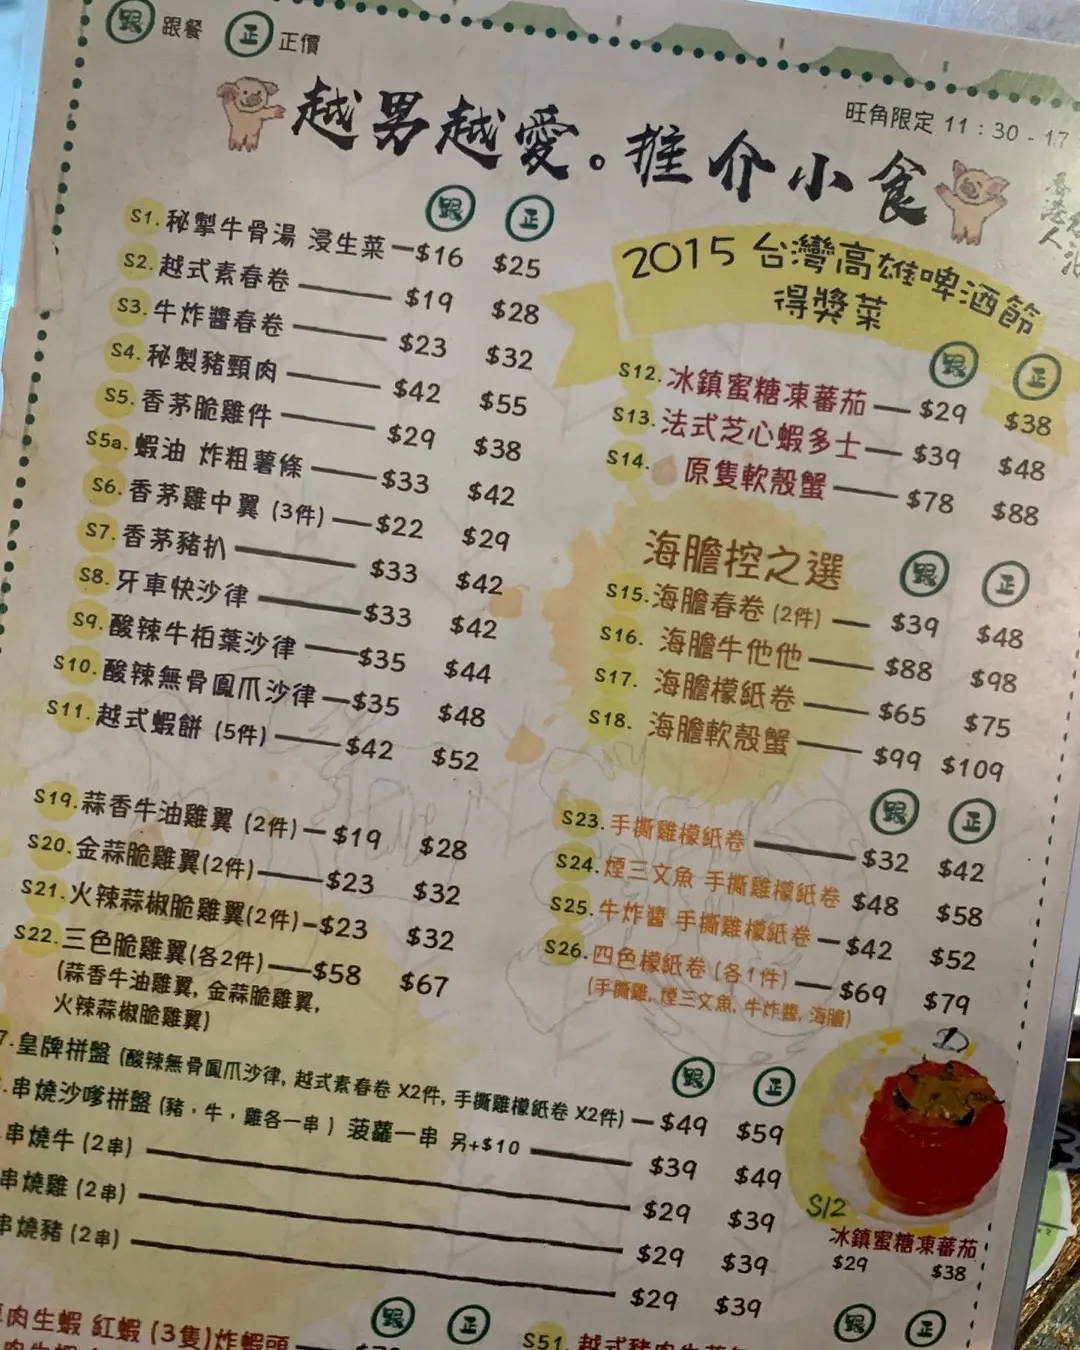 跟 跟餐 正 正價
旺角限定 11：30 - 17
越男越愛。推介小食
香港人
跟 正
S1. 秘掣牛骨湯 浸生菜 $16 $25
S2. 越式素春卷 $19 $28
S3. 牛炸醬春卷 $23 $32
S4. 秘製豬頸肉 $42 $55
S5. 香茅脆雞件 $29 $38
S5a. 蝦油 炸粗薯條 $33 $42
S6. 香茅雞中翼 (3件) $22 $29
S7. 香茅豬扒 $33 $42
S8. 牙車快沙律 $33 $42
S9. 酸辣牛柏葉沙律 $35 $44
S10. 酸辣無骨鳳爪沙律 $35 $48
S11. 越式蝦餅 (5件) $42 $52
2015 台灣高雄啤酒節
得獎菜
跟 正
S12. 冰鎮蜜糖凍蕃茄 $29 $38
S13. 法式芝心蝦多士 $39 $48
S14. 原隻軟殼蟹 $78 $88
海膽控之選
跟 正
S15. 海膽春卷 (2件) $39 $48
S16. 海膽牛他他 $88 $98
S17. 海膽檬紙卷 $65 $75
S18. 海膽軟殼蟹 $99 $109
S19. 蒜香牛油雞翼 (2件) $19 $28
S20. 金蒜脆雞翼(2件) $23 $32
S21. 火辣蒜椒脆雞翼(2件) $23 $32
S22. 三色脆雞翼(各2件) $58 $67
(蒜香牛油雞翼, 金蒜脆雞翼,
火辣蒜椒脆雞翼)
跟 正
S23. 手撕雞檬紙卷 $32 $42
S24. 煙三文魚 手撕雞檬紙卷 $48 $58
S25. 牛炸醬 手撕雞檬紙卷 $42 $52
S26. 四色檬紙卷 (各1件) $69 $79
(手撕雞, 煙三文魚, 牛炸醬, 海膽)
跟 正
7. 皇牌拼盤 (酸辣無骨鳳爪沙律, 越式素春卷 X2件, 手撕雞檬紙卷 X2件) $49 $59
串燒沙嗲拼盤 (豬，牛，雞各一串) 菠蘿一串 另+$10 $39 $49
串燒牛 (2串) $29 $39
串燒雞 (2串) $29 $39
串燒豬 (2串) $29 $39
S12
冰鎮蜜糖凍蕃茄
$29 $38
跟 正
肉生蝦 紅蝦 (3隻)炸蝦頭
跟 正
S51.